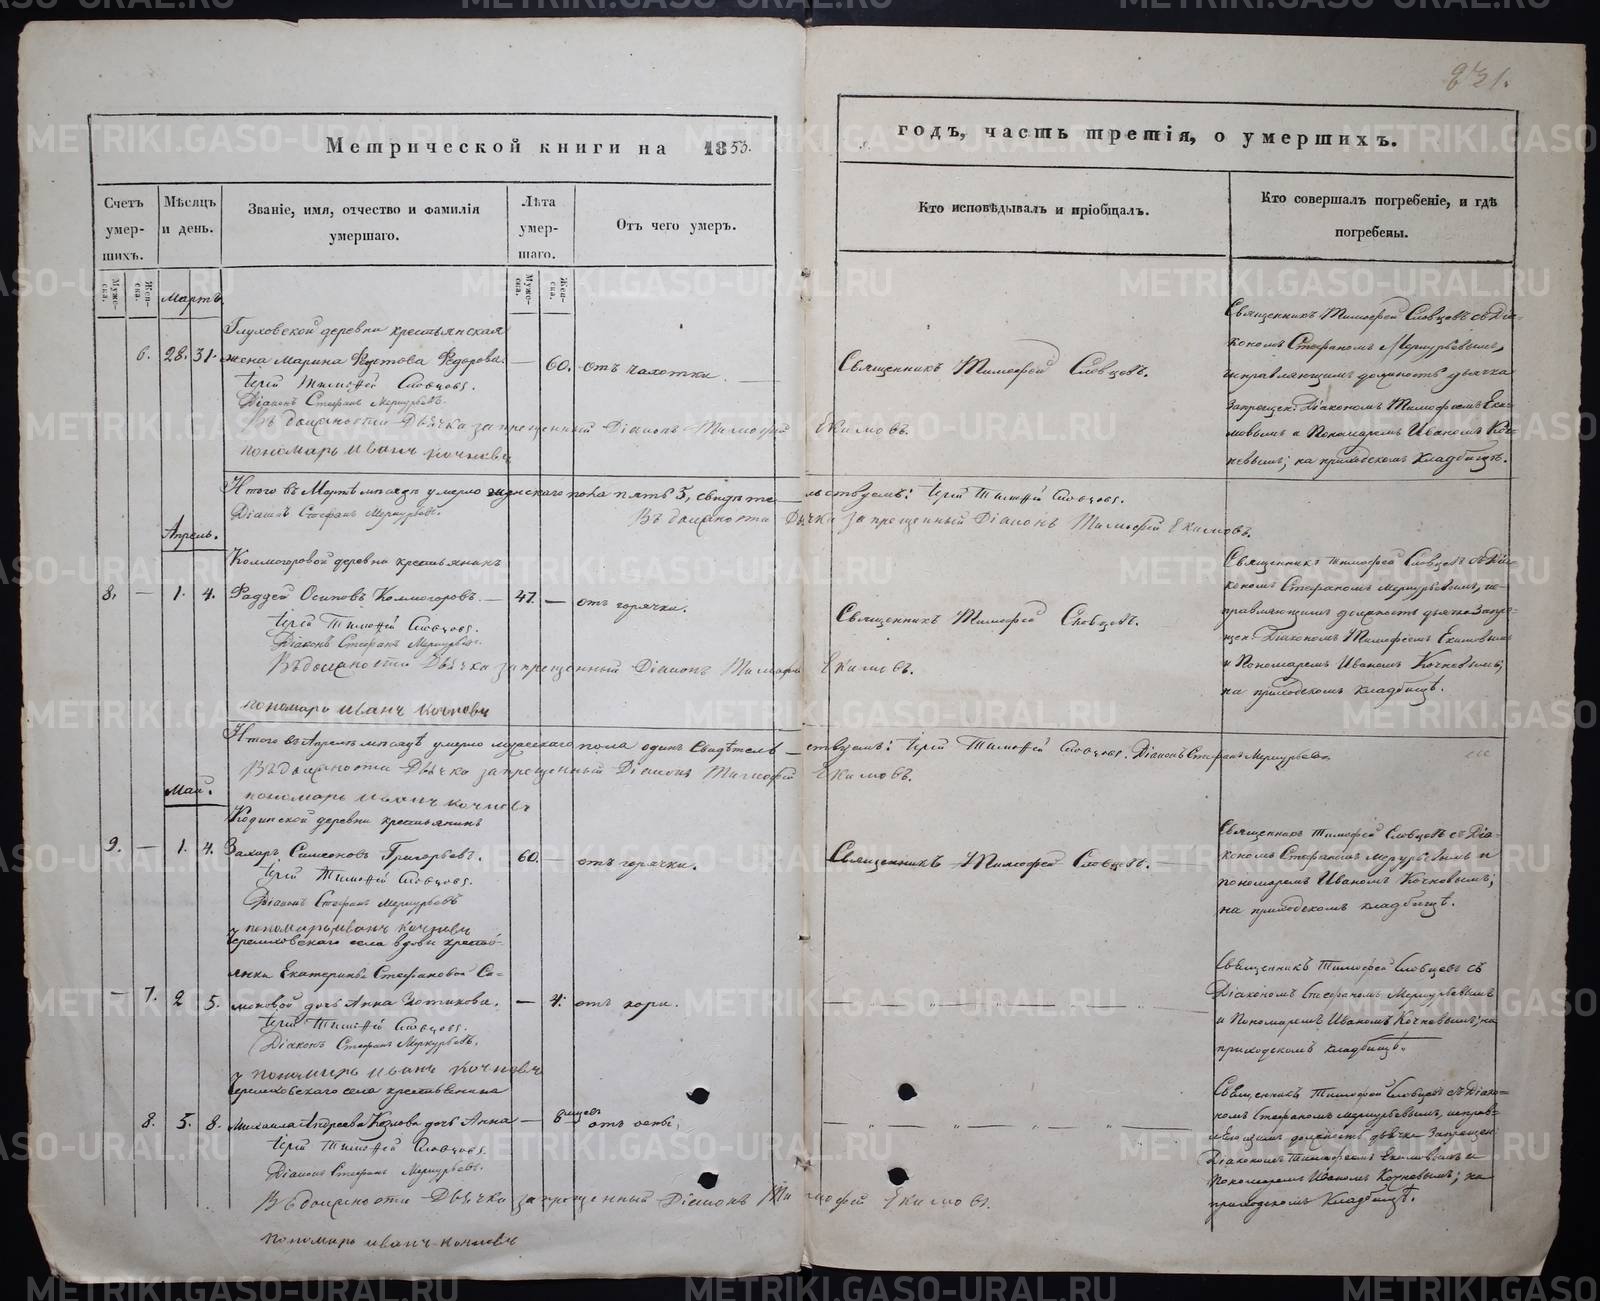 231.
Метрической книги на 1853.
годъ, часть третія, о умершихъ.
Счетъ умер-
шихъ.
Мѣсяцъ
и день.
Званіе, имя, отчество и фамилія
умершаго.
Лѣта
умер-
шаго.
Отъ чего умеръ.
Кто исповѣдывалъ и пріобщалъ.
Кто совершалъ погребеніе, и гдѣ
погребены.
Муже-
ска.
Жен-
ска.
Муже-
ска.
Жен-
ска.
Мартъ
Глуховской деревни крестьянская
6. 28. 31. жена Марина Федорова — 60. отъ чахотки.
Іерей Тимоѳей Словцовъ.
Діаконъ Стефанъ Меркурьевъ.
Въ должности Дьячка запрещенный Діаконъ Тимофей Екимовъ.
пономарь иванъ кочневъ
Священникъ Тимофей Словцовъ.
Священникъ Тимофей Словцовъ съ Діа-
кономъ Стефаномъ Меркурьевымъ,
исправляющимъ должность дьячка
Запрещен. Діакономъ Тимофеемъ Еки-
мовымъ и Пономаремъ Иваномъ Коч-
невымъ; на приходскомъ кладбищѣ.
Итого въ Мартѣ мѣсяцѣ умерло женскаго пола пять 5, свидѣтельствуемъ: Іерей Тимоѳей Словцовъ.
Діаконъ Стефанъ Меркурьевъ. Въ должности Дьячка запрещенный Діаконъ Тимофей Екимовъ.
Апрель.
Колмогоровой деревни крестьянинъ
8. — 1. 4. Фаддей Осиповъ Колмогоровъ. — 47. — отъ горячки.
Іерей Тимоѳей Словцовъ.
Діаконъ Стефанъ Меркурьевъ.
Въ должности Дьячка запрещенный Діаконъ Тимофей Екимовъ.
пономарь иванъ кочневъ
Священникъ Тимофей Словцовъ.
Священникъ Тимофей Словцовъ съ Діа-
кономъ Стефаномъ Меркурьевымъ, ис-
правляющимъ должность дьячка Запре-
щен. Діакономъ Тимофеемъ Екимовымъ
и Пономаремъ Иваномъ Кочневымъ;
на приходскомъ кладбищѣ.
Итого въ Апрелѣ мѣсяцѣ умерло мужескаго пола одинъ Свидѣтельствуемъ: Іерей Тимоѳей Словцовъ. Діаконъ Стефанъ Меркурьевъ
Въ должности Дьячка запрещенный Діаконъ Тимофей Екимовъ.
пономарь иванъ кочневъ
Май.
Кодинской деревни крестьянинъ
9. — 1. 4. Захаръ Симеоновъ Григорьевъ. 60. — отъ горячки.
Іерей Тимоѳей Словцовъ.
Діаконъ Стефанъ Меркурьевъ
пономарь иванъ кочневъ
Священникъ Тимофей Словцовъ. —
Священникъ Тимофей Словцовъ съ Діа-
кономъ Стефаномъ Меркурьевымъ и
пономаремъ Иваномъ Кочневымъ;
на приходскомъ кладбищѣ.
Черемховскаго села вдовы кресть-
янки Екатерины Стефановой
— 7. 2 5. дочь Анна — 4. отъ кори.
Іерей Тимоѳей Словцовъ.
Діаконъ Стефанъ Меркурьевъ.
пономарь иванъ кочневъ
Священникъ Тимофей Словцовъ съ
Діакономъ Стефаномъ Меркурьевымъ
и Пономаремъ Иваномъ Кочневымъ; на
приходскомъ кладбищѣ.
Черемховскаго села крестьянина
8. 5. 8. Михаила Андреева Козлова дочь Анна — 8 мѣсец. отъ оспы,
Іерей Тимоѳей Словцовъ.
Діаконъ Стефанъ Меркурьевъ.
Въ должности Дьячка запрещенный Діаконъ Тимофей Екимовъ.
пономарь иванъ кочневъ
Священникъ Тимофей Словцовъ съ Діако-
номъ Стефаномъ Меркурьевымъ, исправ-
ляющимъ должность дьячка Запрещен.
Діакономъ Тимофеемъ Екимовымъ и
Пономаремъ Иваномъ Кочневымъ; на
приходскомъ Кладбищѣ.
METRIKI.GASO-URAL.RU